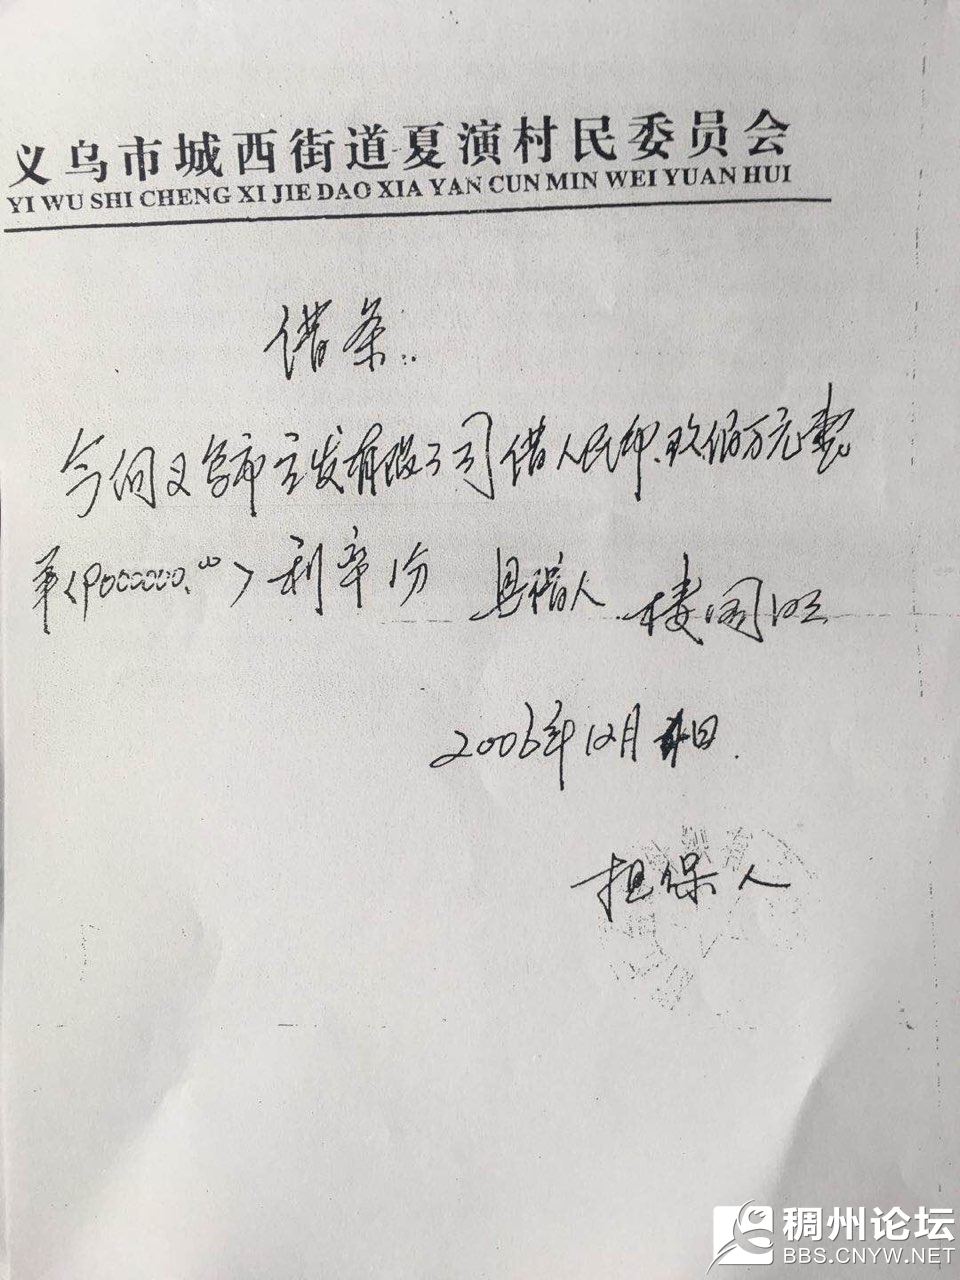 义乌市城西街道夏演村民委员会
YI WU SHI CHENG XI JIE DAO XIA YAN CUN MIN WEI YUAN HUI
借条:
今向义乌市 发有限公司借人民币.玖佰万元整
<9000000.00>利率1分 具借人 楼国
2006年12月 日.
担保人
稠州论坛
BBS.CNYW.NET